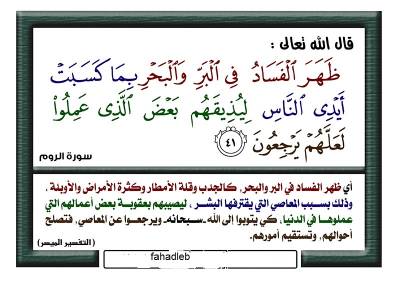 قال الله تعالى :
ظَهَرَ ٱلْفَسَادُ فِى ٱلْبَرِّ وَٱلْبَحْرِ بِمَا كَسَبَتْ
أَيْدِى ٱلنَّاسِ لِيُذِيقَهُم بَعْضَ ٱلَّذِى عَمِلُوا۟
لَعَلَّهُمْ يَرْجِعُونَ ٤١
سورة الروم
أي ظهر الفساد في البر والبحر، كالجدب وقلة الأمطار وكثرة الأمراض والأوبئة ،
وذلك بسبب المعاصي التي يقترفها البشر ، ليصيبهم بعقوبة بعض أعمالهم التي
عملوها في الدنيا، كي يتوبوا إلى الله -سبحانه- ويرجعوا عن المعاصي، فتصلح
أحوالهم، وتستقيم أمورهم.
( التفسير الميسر)
fahadleb